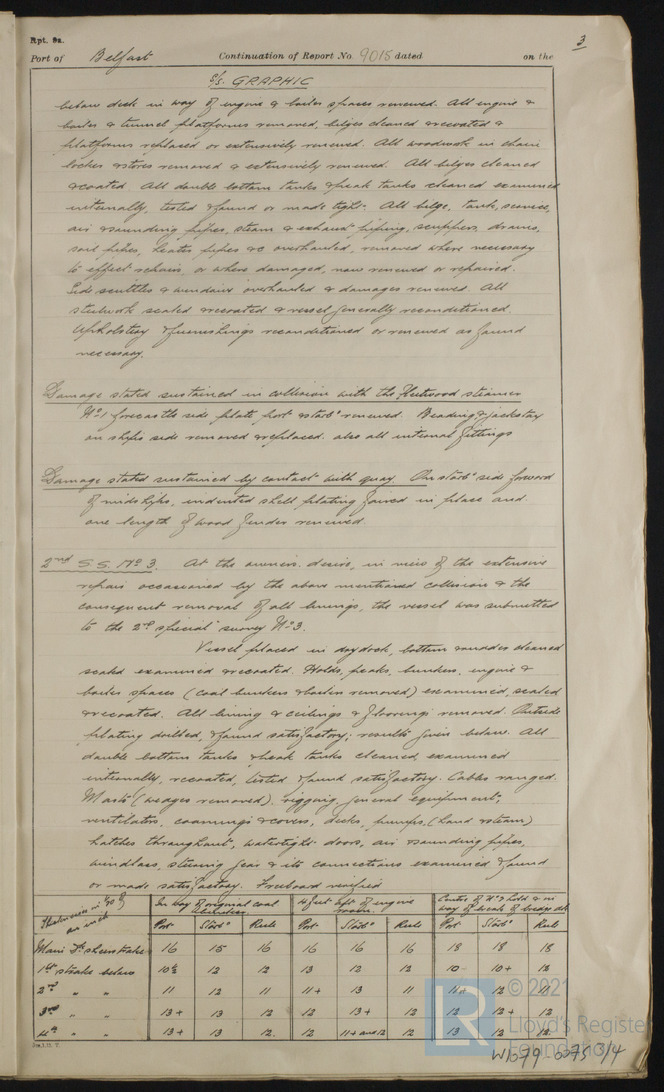 Rpt. 9a.
3
Port of Belfast Continuation of Report No. 9015 dated on the
S/S. GRAPHIC
below deck in way of engine & boiler spaces renewed. All engine &
boiler & tunnel platforms removed, bilges cleaned & recoated &
platforms replaced or extensively renewed. All woodwork in chain
locker & stores removed & extensively renewed. All bilges cleaned
& coated. All double bottom tanks & peak tanks cleaned examined
internally, tested & found or made tight. All bilge, tank, service,
air & sounding pipes, steam & exhaust piping, scuppers, drains,
soil pipes, heater pipes &c overhauled, removed where necessary
to effect repairs, or where damaged, now renewed or repaired.
Side scuttles & windows overhauled & damages renewed. All
steelwork scaled & recoated & vessel generally reconditioned.
Upholstery & furnishings reconditioned or renewed as found
necessary.
Damage stated sustained in collision with the Fleetwood steamer
No 1 forecastle side plate port & starbd renewed. Beading & jackstay
on ships side removed & replaced. also all internal fittings
Damage stated sustained by contact with quay. On starbd side forward
of midships, indented shell plating faired in place and
one length of wood fender renewed.
2nd S.S. No 3. At the owners desire, in view of the extensive
repairs occasioned by the above mentioned collision & the
consequent removal of all linings, the vessel was submitted
to the 2nd special survey No 3.
Vessel placed in drydock, bottom & sides cleaned
scaled examined & recoated. Holds, peaks, bunkers, engine &
boiler spaces (coal bunkers & boilers removed) examined, scaled
& recoated. All lining & ceilings & floorings removed. Outside
plating drilled, & found satisfactory; results given below. All
double bottom tanks & peak tanks cleaned, examined
internally, recoated, tested & found satisfactory. Cables ranged.
Masts (wedges removed). rigging general equipment,
ventilators, coamings & covers, decks, pumps, (hand & steam)
hatches throughout, watertight doors, air & sounding pipes,
windlass, steering gear & its connections examined & found
or made satisfactory. Freeboard verified
Thicknesses in 1/20 of an inch | In way of original coal bunkers | 14 feet aft of engine room | Centre of No 2 hold & in way of break of bridge dk
Port Starbd Rule Port Starbd Rule Port Starbd Rule
Main Dk sheerstrake 16 15 16 16 16 16 18 18 18
1st strake below 10½ 12 12 13 12 12 10 10+ 12
2nd " " 11 12 11 11+ 13 11 11+ 12 11
3rd " " 13+ 13 12 12 13+ 12 12 12+ 12
4th " " 13+ 13 12. 12 11+ and 12 12 13 12 12
© 2021
LR
Lloyd's Register
Foundation
W1079-0075 3/4